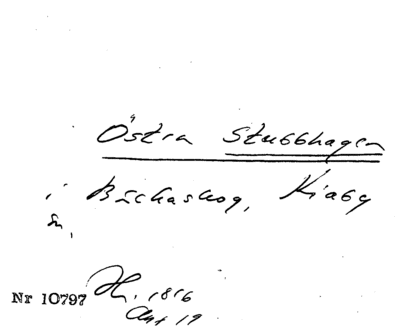 Östra Stubbhagen
i Bäckaskog, Kiaby
sn,
Nr 10797 Hi. 1816
Akt 19